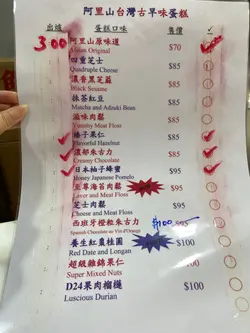 阿里山台灣古早味蛋糕
出爐 蛋糕口味 售價 ✓
300 阿里山原味道 $70
Alisan Original
四重芝士 $85
Quadruple Cheese
濃香黑芝麻 $85
Black Sesame
抹茶紅豆 $85
Matcha and Adzuki Bean
滋味肉鬆 $85
Yummy Meat Floss
榛子果仁 $85
Flavorful Hazelnut
濃郁朱古力 $85
Creamy Chocolate
日本柚子蜂蜜 $85
Honey Japanese Pomelo
至尊海苔肉鬆 $85
Laver and Meat Floss
芝士肉鬆 $85
Cheese and Meat Floss
西班牙橙粒朱古力 $100 $95
Spanish Chocolate w/
養生紅棗桂圓 $100
Red Date and Longan
超級雜錦果仁 $100
Super Mixed Nuts
D24果肉榴槤 $100
Luscious Durian